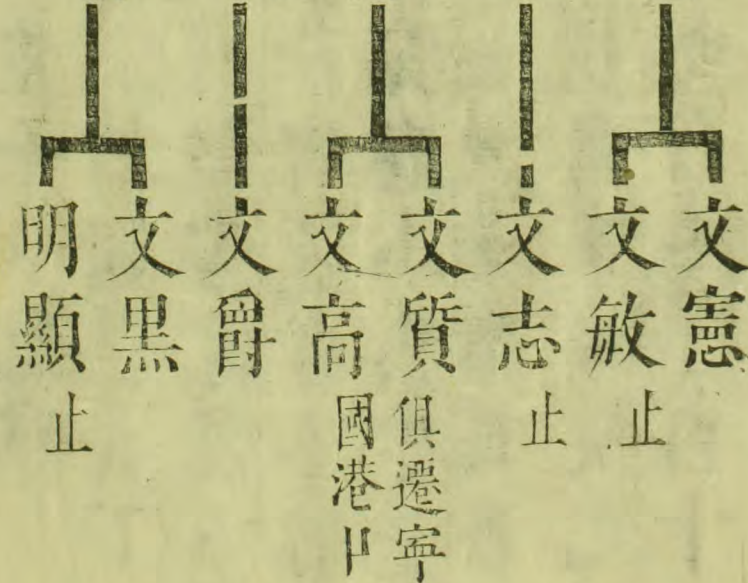 文憲
文敏 止
文志 止
文質 俱遷寕
文高 國港口
文爵
文黒
明顯 止